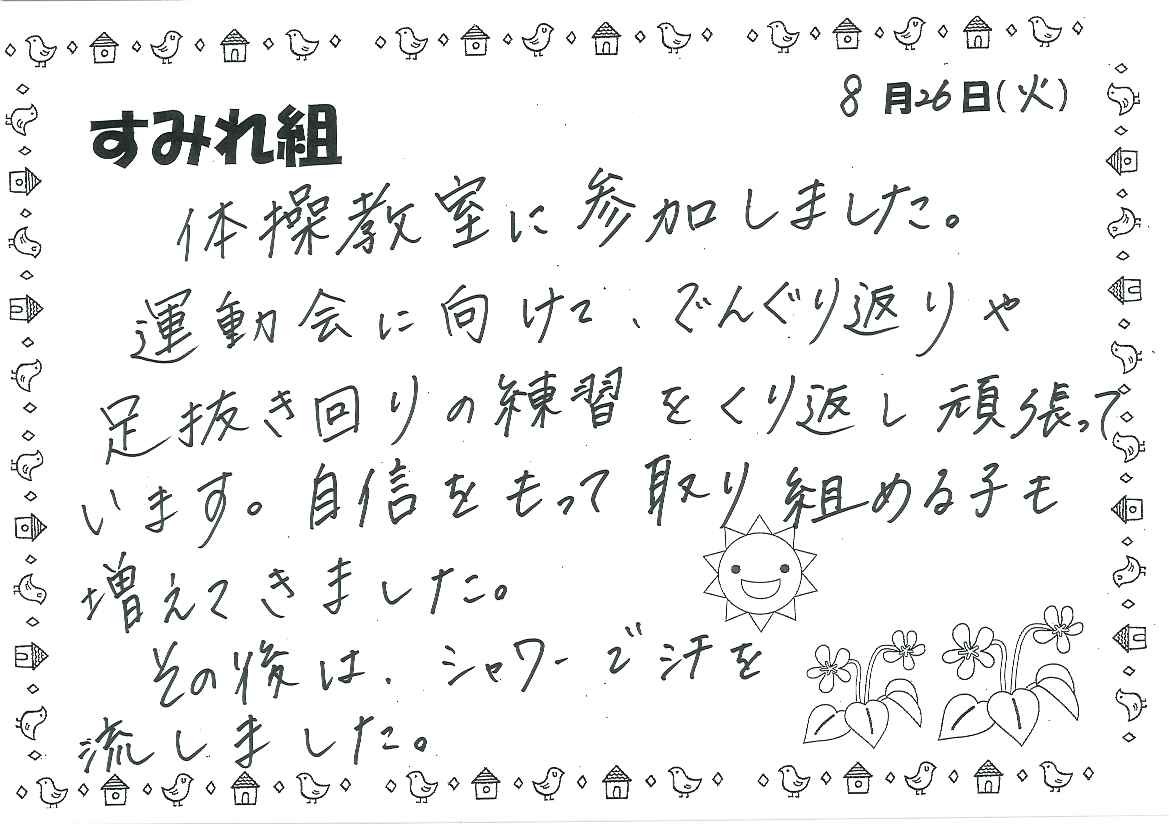 8月26日(火)
すみれ組
体操教室に参加しました。
運動会に向けて、でんぐり返りや
足抜き回りの練習をくり返し頑張って
います。自信をもって取り組める子も
増えてきました。
その後は、シャワーで汗を
流しました。